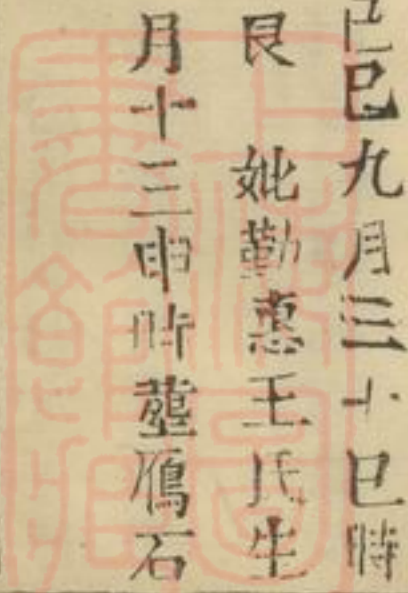 己巳九月三十巳時
艮 妣勤惠王氏生
月十三申時塟鴈石